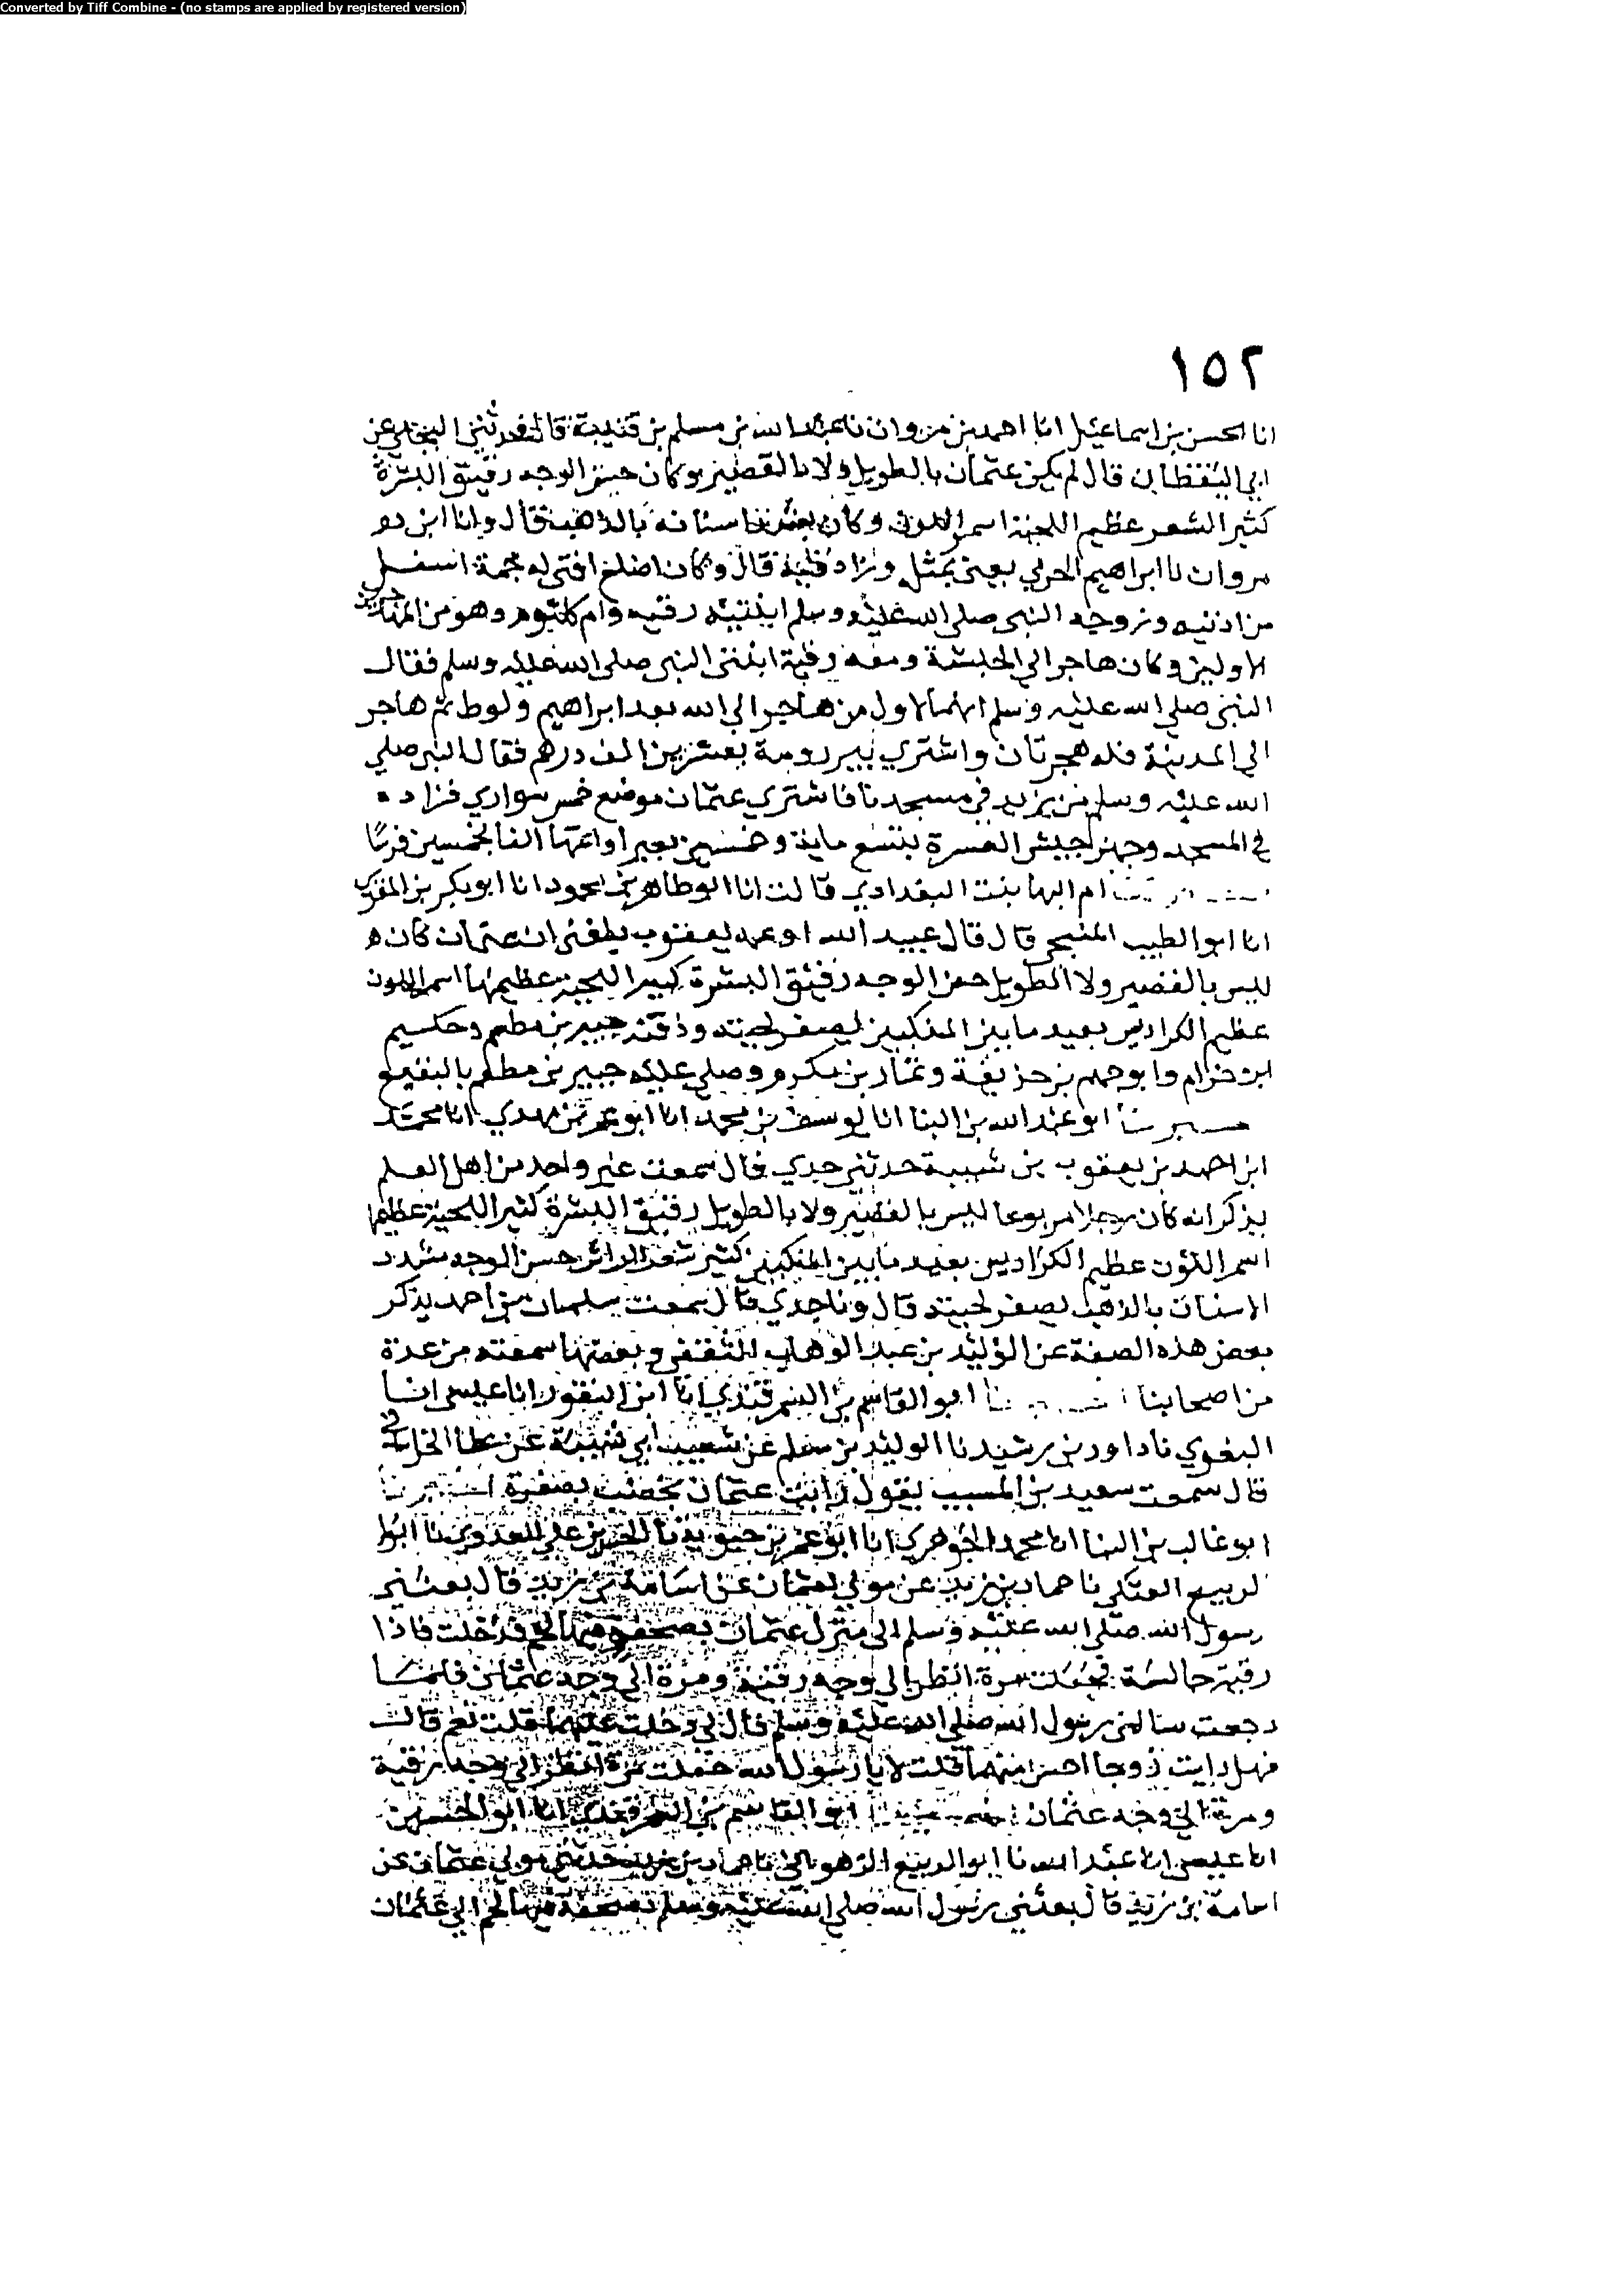 Converted by Tiff Combine - (no stamps are applied by registered version)
١٥٢
انا الحسن بن اسماعيل انا احمد بن مروان نا عبد الله بن مسلم بن قتيبة قال فحدثني عن
ابي اليقظان قال لم يكن عثمان بالطويل ولا بالقصير وكان حسن الوجه رقيق البشرة
كثير الشعر عظيم اللحية اسمر اللون وكان يشد اسنانه بالذهب قال وانا ابن
مروان نا ابراهيم الحربي بمثله وزاد فيه قال وكان اصلع اقنى له جمة اسفل
من اذنيه وزوجه النبي صلى الله عليه وسلم ابنتيه رقيه وام كلثوم وهو من المهاجرين
الاولين وكان هاجر الي الحبشة ومعه رقية ابنت النبي صلى الله عليه وسلم فقال
النبي صلي الله عليه وسلم انهما لاول من هاجر الي الله بعد ابراهيم ولوط ثم هاجر
الي المدينة فله هجرتان واشتري بير رومة بعشرين الف درهم فقال النبي صلي
الله عليه وسلم من يزيد في مسجدنا فاشتري عثمان موضع خمس سواري فزاده
في المسجد وجهز جيش العسرة بتسع ماية وخمسين بعيرا واتمها الفا بخمسين فرسا
ام البها بنت البغدادي قالت انا ابو طاهر بن محمود انا ابو بكر بن المقري
انا ابو الطيب المنبجي قال قال عبيد الله ابو عمه يعقوب بلغني ان عثمان كان
ليس بالقصير ولا الطويل حسن الوجه رقيق البشرة كبير اللحية عظيمها اسمر اللون
عظيم الكراديس بعيد ما بين المنكبين يصفر لحيته ودفنه جبير بن مطعم وحكيم
ابن حزام وابو جهم بن حذيفة ونيار بن مكرم وصلي عليه جبير بن مطعم بالبقيع
ابو عبد الله بن البنا انا يوسف بن محمد انا ابو عمر بن مهدي انا محمد
ابن احمد بن يعقوب بن شيبة حدثني جدي قال سمعت غير واحد من اهل العلم
يذكر انه كان رجلا مربوعا ليس بالقصير ولا بالطويل رقيق البشرة كثير اللحية عظيمها
اسمر اللون عظيم الكراديس بعيد ما بين المنكبين كثير شعر الراس حسن الوجه مشدد
الاسنان بالذهب يصفر لحيته قال ونا جدي قال سمعت سليمان بن احمد يذكر
بعض هذه الصفة عن الوليد بن عبد الوهاب الثقفي وبعضها سمعته من عدة
من اصحابنا ابو القاسم بن السمرقندي انا ابن النقور انا عيسي انا
البغوي نا داود بن رشيد نا الوليد بن مسلم عن شعيب ابي شيبة عن عطا الخراساني
قال سمعت سعيد بن المسيب يقول رايت عثمان يخضب بصفرة اخبرنا
ابو غالب بن البنا انا محمد الجوهري انا ابو عمر بن حيويه نا الحسن بن علي العدوي نا ابو
الربيع العتكي نا حماد بن زيد عن مولي لعثمان عن اسامة بن زيد قال بعثني
رسول الله صلي الله عليه وسلم الي منزل عثمان بصحفة فيها لحم فدخلت فاذا
رقية جالسة فجعلت مرة انظر الي وجه رقية ومرة الي وجه عثمان فلما
رجعت سالني رسول الله صلي الله عليه وسلم قال لي دخلت عليهما قلت نعم قال
فهل رايت زوجا احسن منهما قلت لا يا رسول الله جعلت مرة انظر الي وجه رقية
ومرة الي وجه عثمان ابو القاسم بن السمرقندي انا ابو الحسين
انا عيسي انا عبد الله نا ابو الربيع الزهراني نا حماد بن زيد حدثني مولي عثمان عن
اسامة بن زيد قال بعثني رسول الله صلي الله عليه وسلم بصحفة فيها لحم الي عثمان